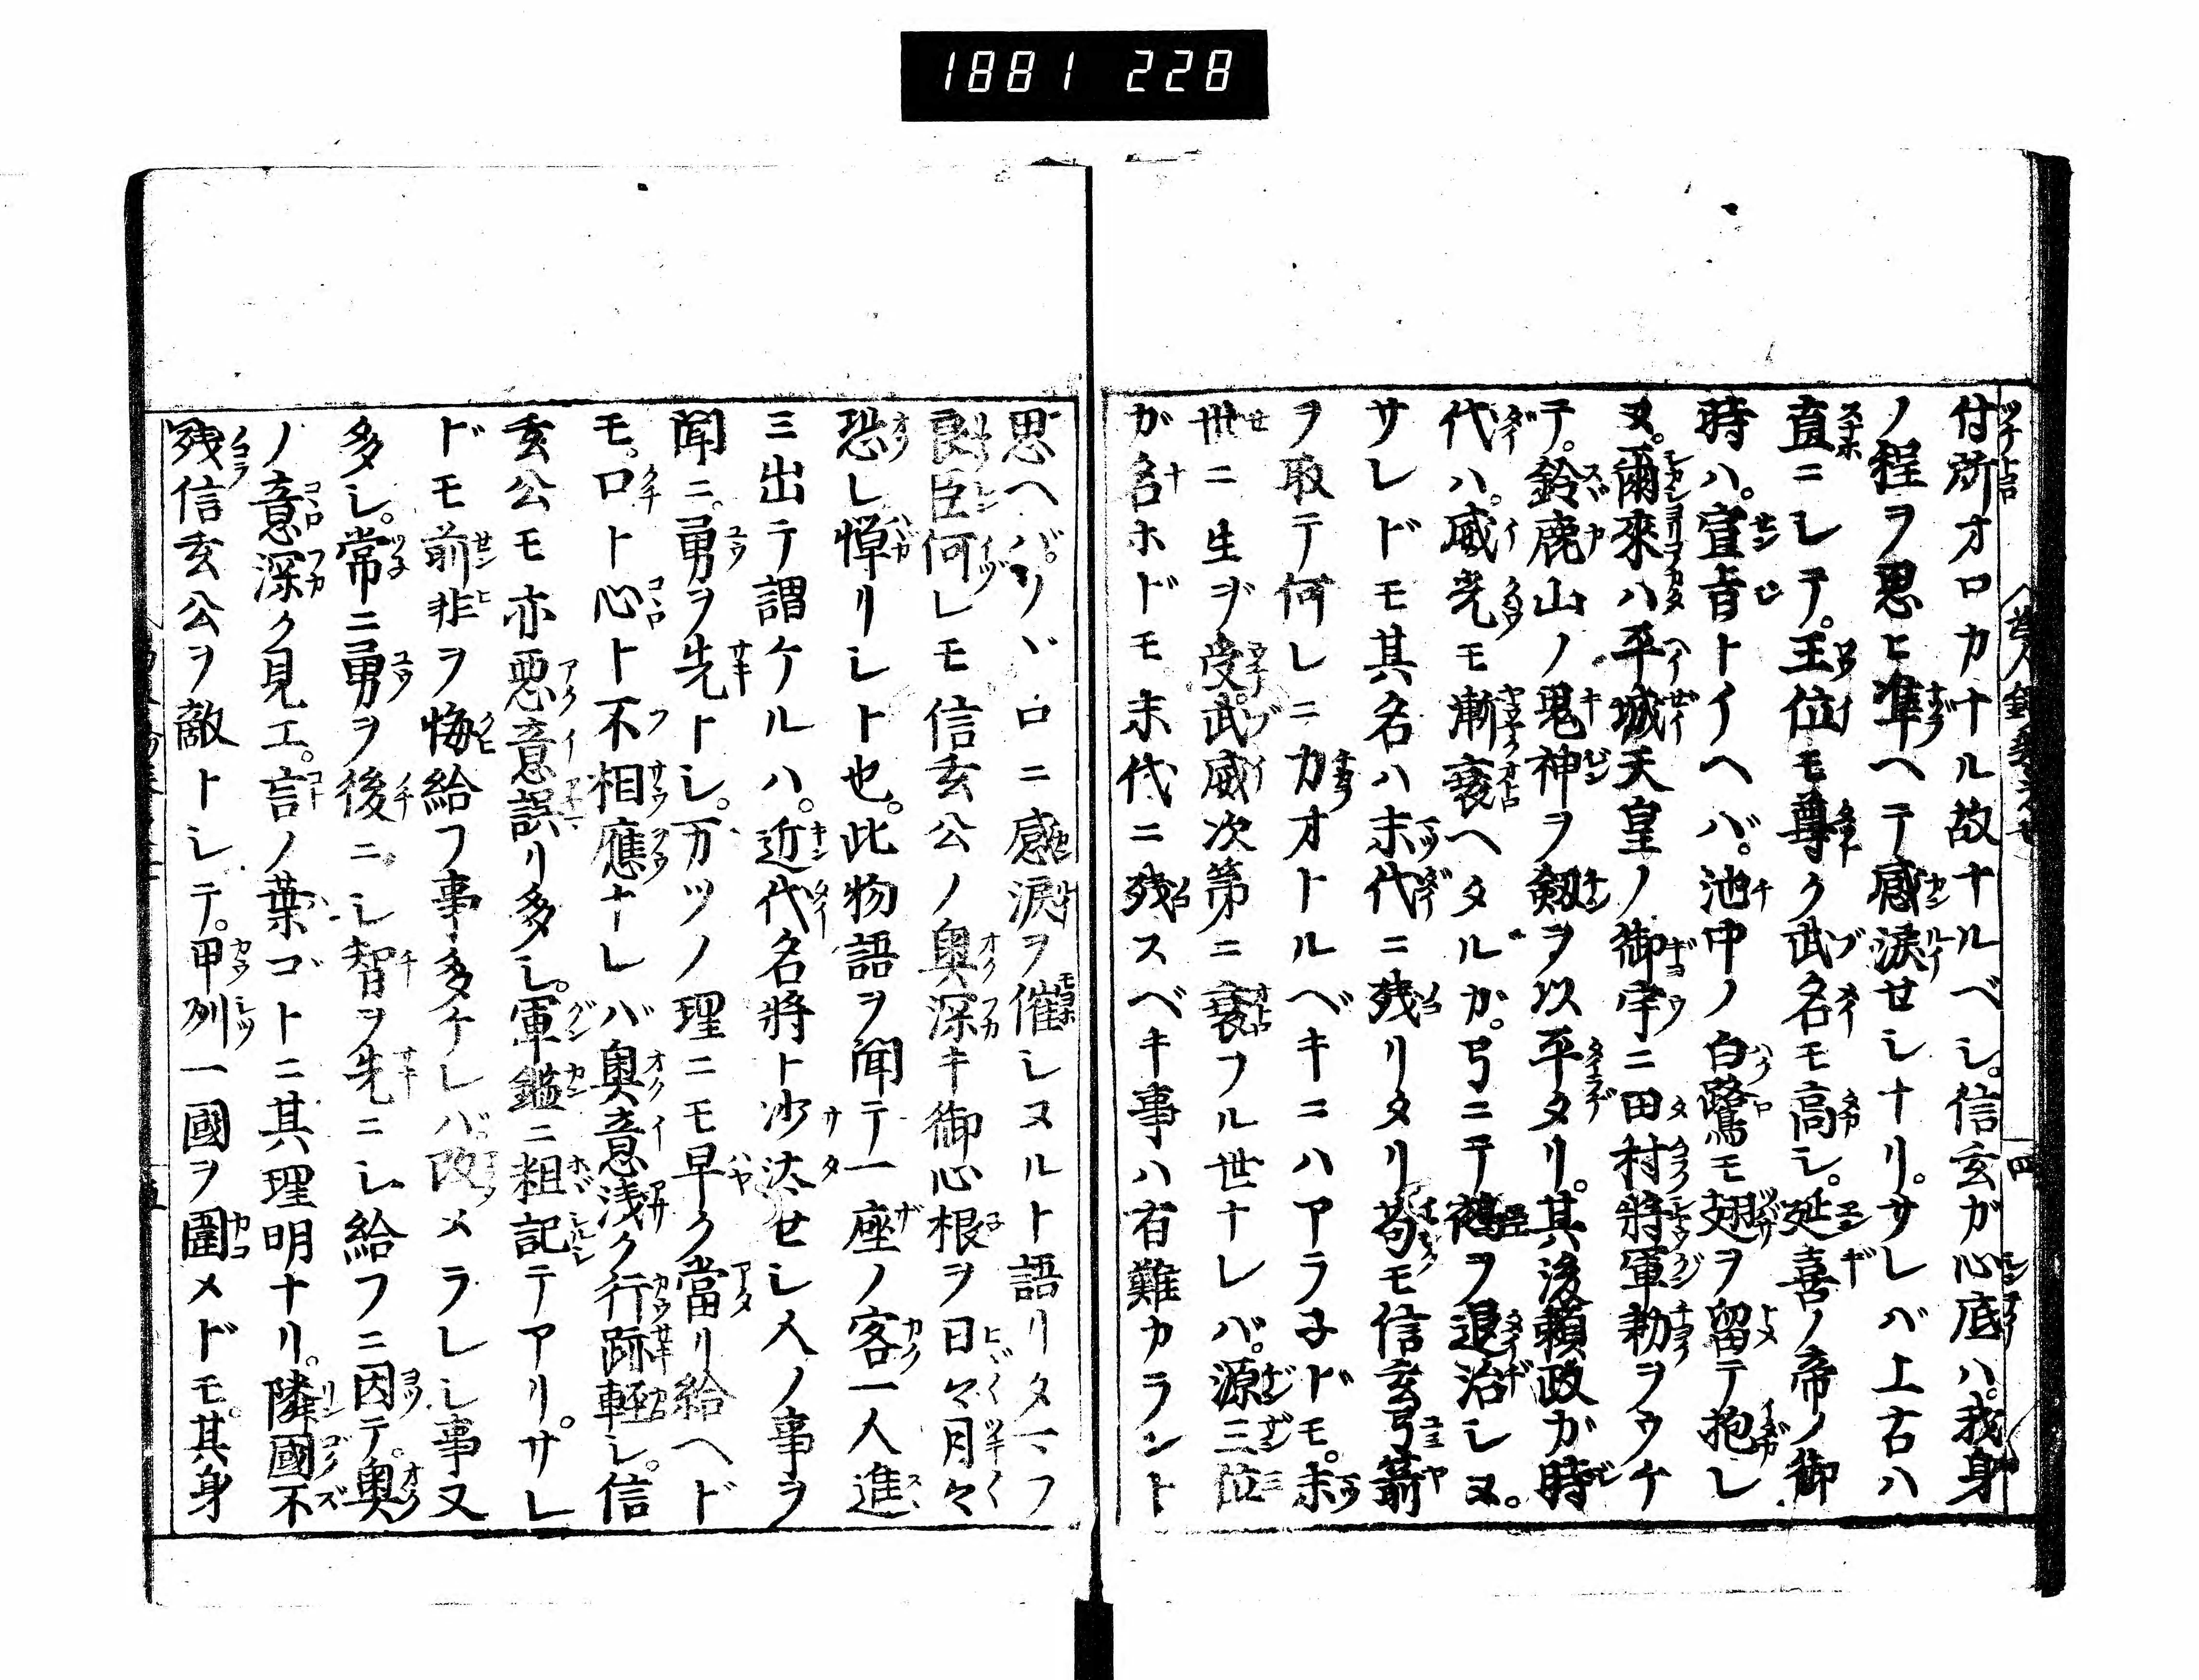 1881 228
付所オロカナル故ナルベシ。信玄ガ心底ハ。我身
ノ程ヲ思ヒ準ヘテ感涙セシナリ。サレバ上古ハ
直ニシテ。王位モ尊ク武名モ高シ。延喜ノ帝ノ御
時ハ。宣旨トイヘバ。池中ノ白鷺モ翅ヲ留テ抱レ
ヌ。爾來ハ平城天皇ノ御宇ニ田村將軍勅ヲウケ
テ。鈴鹿山ノ鬼神ヲ劔ヲ以平タリ。其後頼政ガ時
代ハ。威光モ漸衰ヘタルカ。弓ニテ鵺ヲ退治シヌ。
サレドモ其名ハ末代ニ残リタリ苟モ信玄弓箭
ヲ取テ何レニカオトルベキニハアラ子ドモ。末
世ニ生ヲ受。武威次第ニ衰フル世ナレバ。源三位
ガ名ホドモ末代ニ残スベキ事ハ有難カラント
思ヘバ。ソヾロニ感涙ヲ催シヌルト語リタマフ
良臣何レモ信玄公ノ奥深キ御心根ヲ日々月々
恐レ憚リシト也。此物語ヲ聞テ一座ノ客一人進
ミ出テ謂ケルハ。近代名將ト沙汰セシ人ノ事ヲ
聞ニ。勇ヲ先トシ。万ヅノ理ニモ早ク當リ給ヘド
モ。口ト心ト不相應ナレバ奥意浅ク行跡軽シ。信
玄公モ亦悪意誤リ多シ。軍鑑ニ粗記テアリ。サレ
ドモ前非ヲ悔給フ事多ケレバ。改メラレシ事又
多シ。常ニ勇ヲ後ニシ智ヲ先ニシ給フニ因テ。奥
ノ意深ク見エ。言ノ葉ゴトニ其理明ナリ。隣國不
残信玄公ヲ敵トシテ。甲列一國ヲ圍メドモ。其身